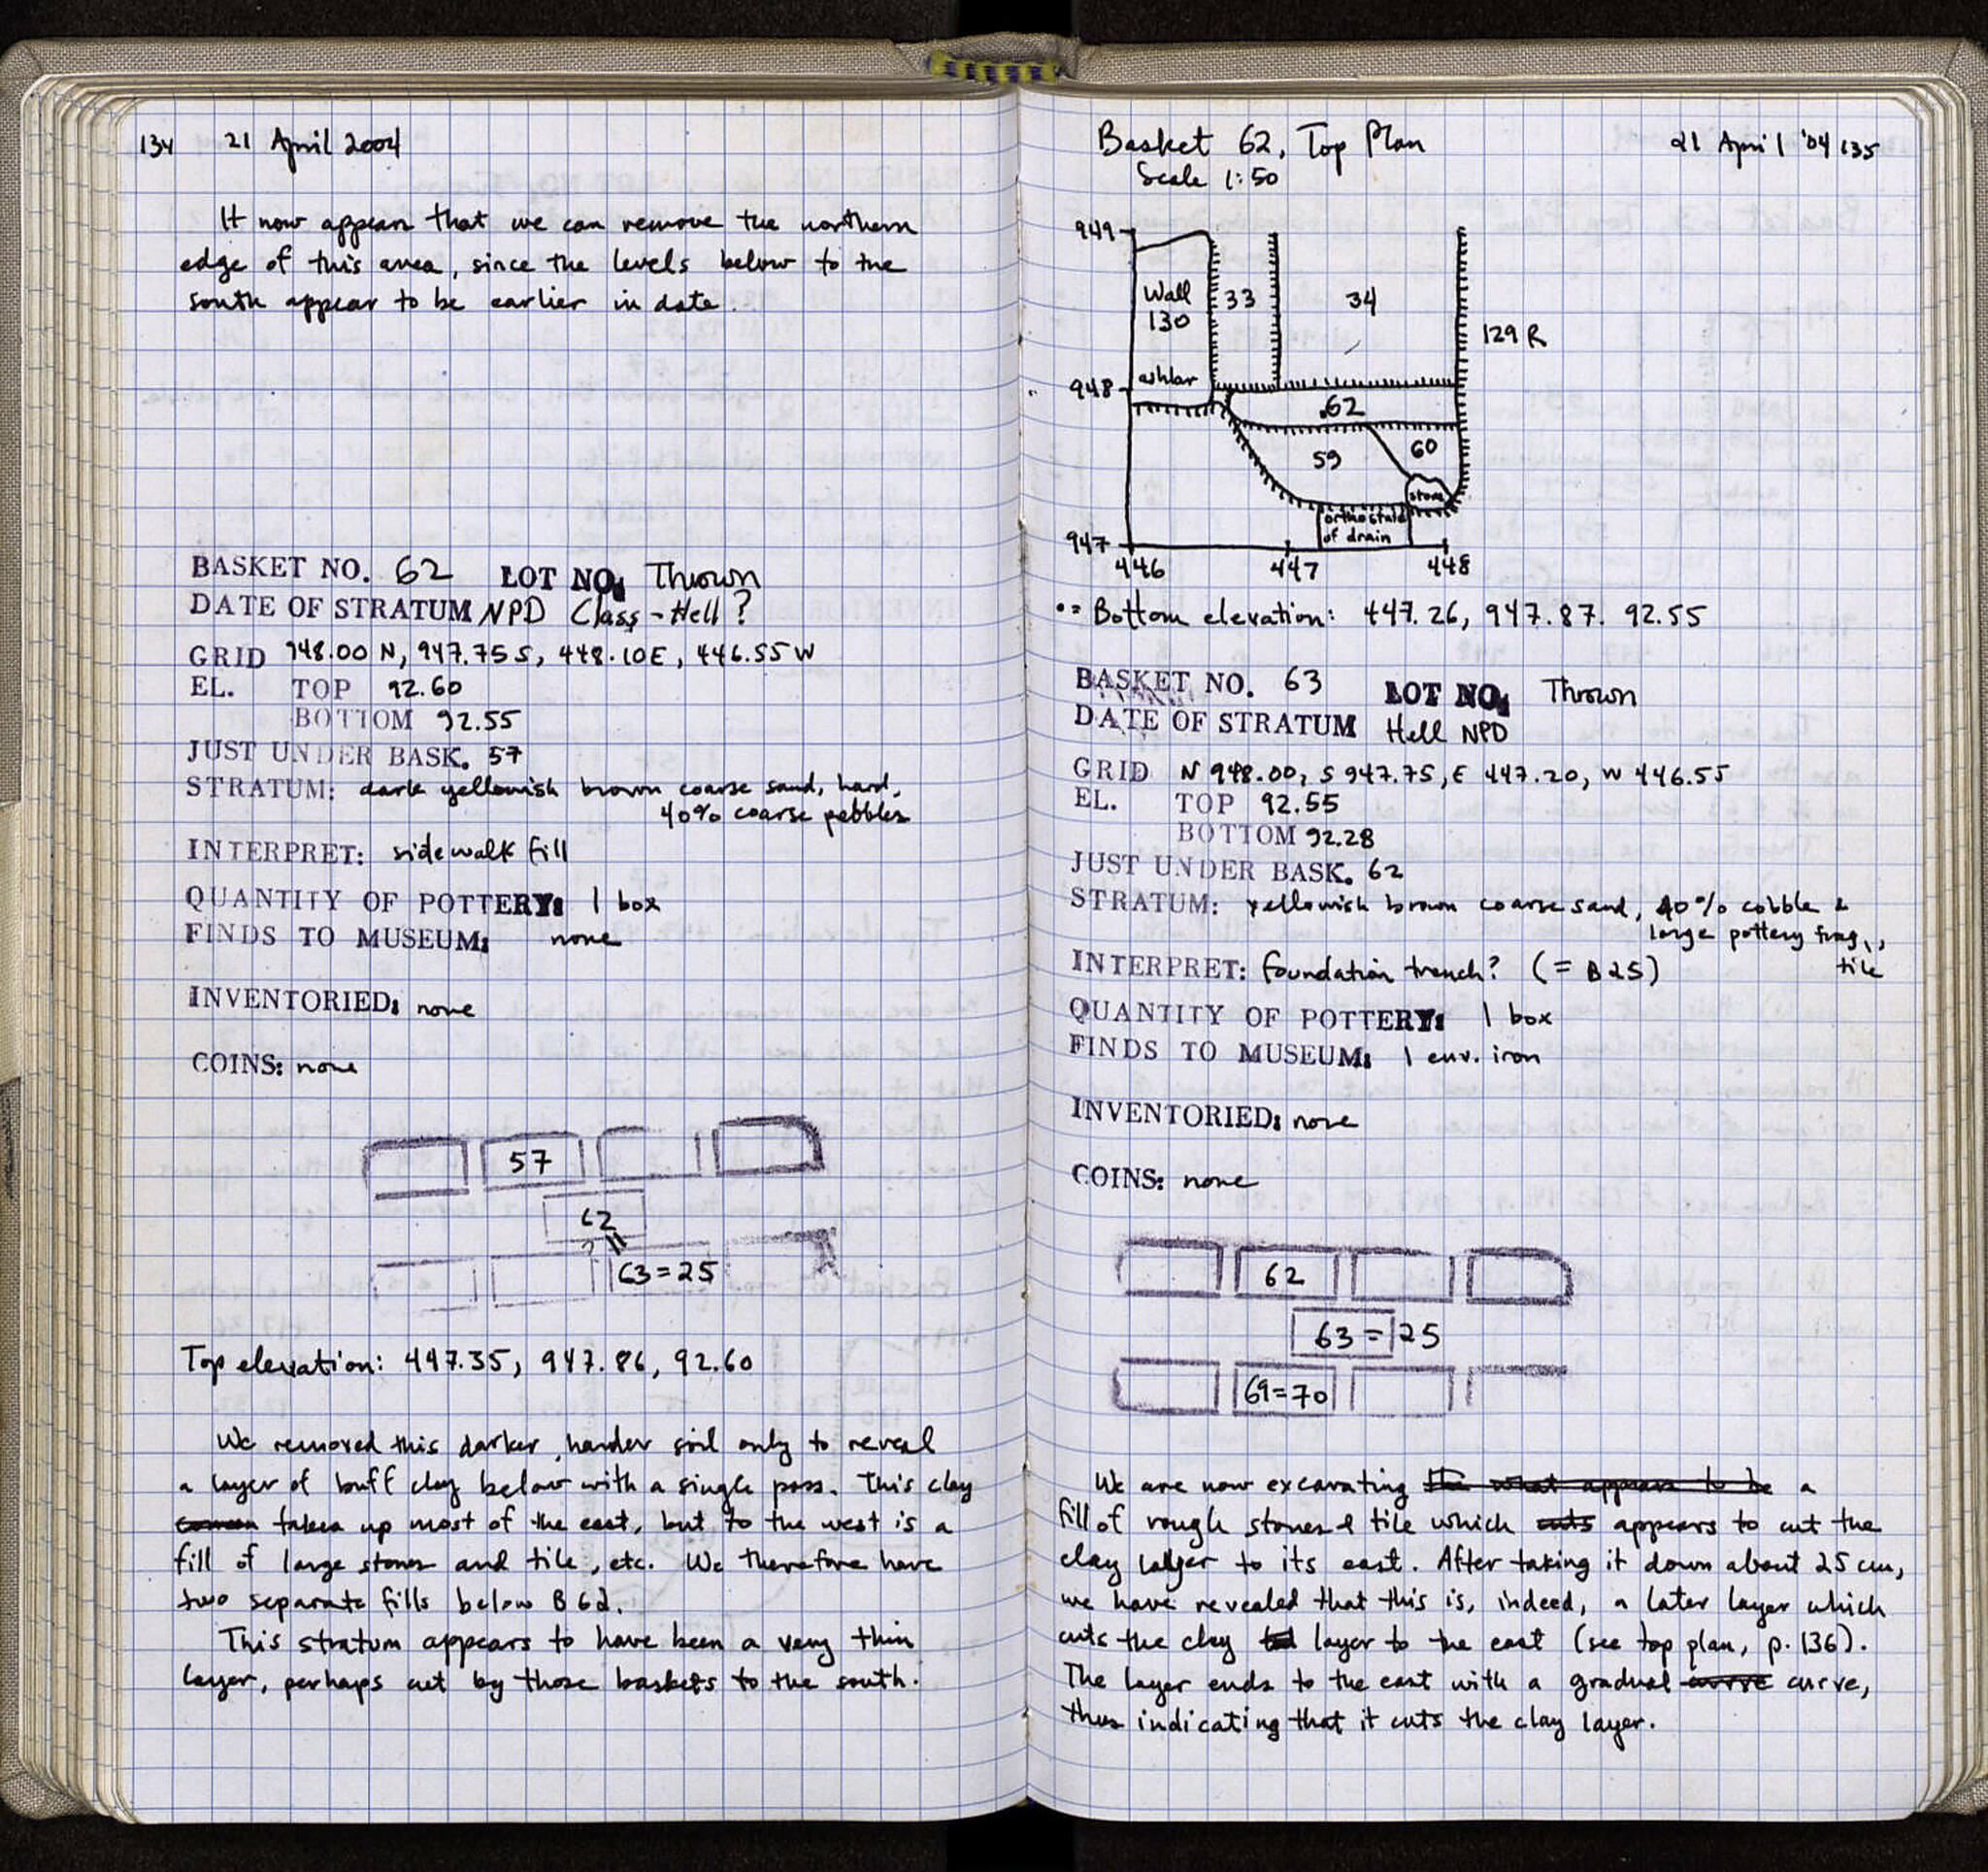 134 21 April 2004
It now appears that we can remove the northern
edge of this area, since the levels below to the
south appear to be earlier in date.
BASKET NO. 62 LOT NO. Thrown
DATE OF STRATUM NPD Class-Hell?
GRID 948.00 N, 947.75 S, 448.10 E, 446.55 W
EL. TOP 92.60
BOTTOM 92.55
JUST UNDER BASK. 57
STRATUM: dark yellowish brown coarse sand, hard,
40% coarse pebbles
INTERPRET: sidewalk fill
QUANTITY OF POTTERY: 1 box
FINDS TO MUSEUM: none
INVENTORIED: none
COINS: none
57
62
? 
63=25
Top elevation: 447.35, 947.86, 92.60
We removed this darker, harder soil only to reveal
a layer of buff clay below with a single pass. This clay
takes up most of the east, but to the west is a
fill of large stones and tile, etc. We therefore have
two separate fills below B62.
This stratum appears to have been a very thin
layer, perhaps cut by those baskets to the south.
Basket 62, Top Plan 21 April '04 135
Scale 1:50
949
Wall 130
33
34
129 R
948
ashlar
.62
59
60
stone
orthostate
of drain
947
446 447 448
•= Bottom elevation: 447.26, 947.87. 92.55
BASKET NO. 63 LOT NO. Thrown
DATE OF STRATUM Hell NPD
GRID N 948.00, S 947.75, E 447.20, W 446.55
EL. TOP 92.55
BOTTOM 92.28
JUST UNDER BASK. 62
STRATUM: yellowish brown coarse sand, 40% cobble &
large pottery frag.,
tile
INTERPRET: foundation trench? (= B25)
QUANTITY OF POTTERY: 1 box
FINDS TO MUSEUM: 1 env. iron
INVENTORIED: none
COINS: none
62
63 = 25
69=70
We are now excavating the what appears to be a
fill of rough stones & tile which cuts appears to cut the
clay layer to its east. After taking it down about 25 cm,
we have revealed that this is, indeed, a later layer which
cuts the clay layer to the east (see top plan, p. 136).
The layer ends to the east with a gradual curve curve,
thus indicating that it cuts the clay layer.